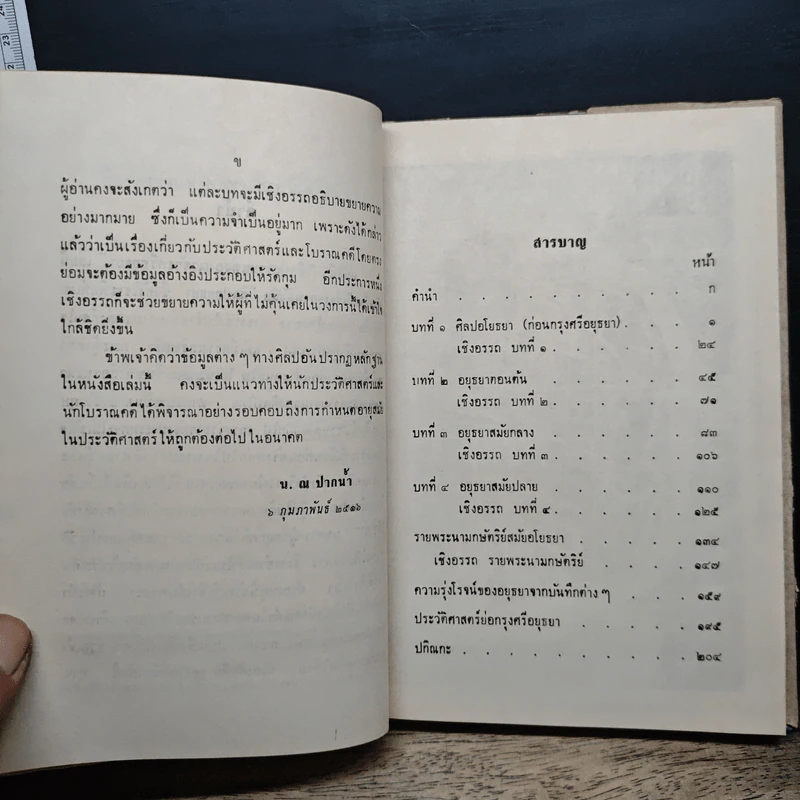 24
23
ข
ผู้อ่านคงจะสังเกตว่า แต่ละบทจะมีเชิงอรรถอธิบายขยายความ
อย่างมากมาย ซึ่งก็เป็นความจำเป็นอยู่มาก เพราะดังได้กล่าว
แล้วว่าเป็นเรื่องเกี่ยวกับประวัติศาสตร์และโบราณคดีโดยตรง
ย่อมจะต้องมีข้อมูลอ้างอิงประกอบให้รัดกุม อีกประการหนึ่ง
เชิงอรรถก็จะช่วยขยายความให้ผู้ที่ไม่คุ้นเคยในวงการนี้ได้เข้าใจ
ใกล้ชิดยิ่งขึ้น
ข้าพเจ้าคิดว่าข้อมูลต่าง ๆ ทางศิลปอันปรากฏหลักฐาน
ในหนังสือเล่มนี้ คงจะเป็นแนวทางให้นักประวัติศาสตร์และ
นักโบราณคดีได้พิจารณาอย่างรอบคอบถึงการกำหนดอายุสมัย
ในประวัติศาสตร์ให้ถูกต้องต่อไปในอนาคต
น. ณ ปากน้ำ
๖ กุมภาพันธ์ ๒๕๑๖
สารบาญ
หน้า
คำนำ . . . . . . . . . . ก
บทที่ ๑ ศิลปอโยธยา (ก่อนกรุงศรีอยุธยา) . . . ๑
เชิงอรรถ บทที่ ๑ . . . . . . ๒๔
บทที่ ๒ อยุธยาตอนต้น . . . . . . ๔๕
เชิงอรรถ บทที่ ๒ . . . . . . ๗๑
บทที่ ๓ อยุธยาสมัยกลาง . . . . . . ๘๓
เชิงอรรถ บทที่ ๓ . . . . . . ๑๐๖
บทที่ ๔ อยุธยาสมัยปลาย . . . . . . ๑๑๐
เชิงอรรถ บทที่ ๔ . . . . . . ๑๒๕
รายพระนามกษัตริย์สมัยอโยธยา . . . . . ๑๓๔
เชิงอรรถ รายพระนามกษัตริย์ . . . . . ๑๔๗
ความรุ่งโรจน์ของอยุธยาจากบันทึกต่าง ๆ . . . . ๑๕๙
ประวัติศาสตร์ย่อกรุงศรีอยุธยา . . . . . ๑๙๕
ปกิณกะ . . . . . . . . . ๒๐๔